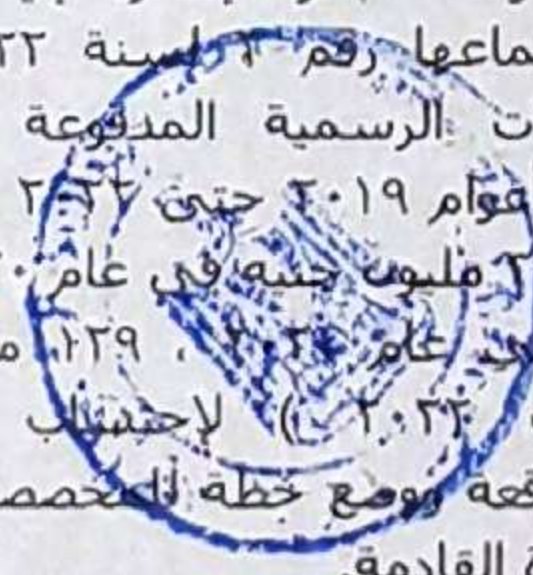 ماعها رقم ٢ لسنة ٢٢
ت الرسمية المدفوعة
٢٠١٩ حتى ٢٠٢٢
مليون جنيه في عام
عام ، ١٢٩
٢٠٢٢ ) لإحتساب
قعة ووضع خطة المخصصا
ة القادمة.